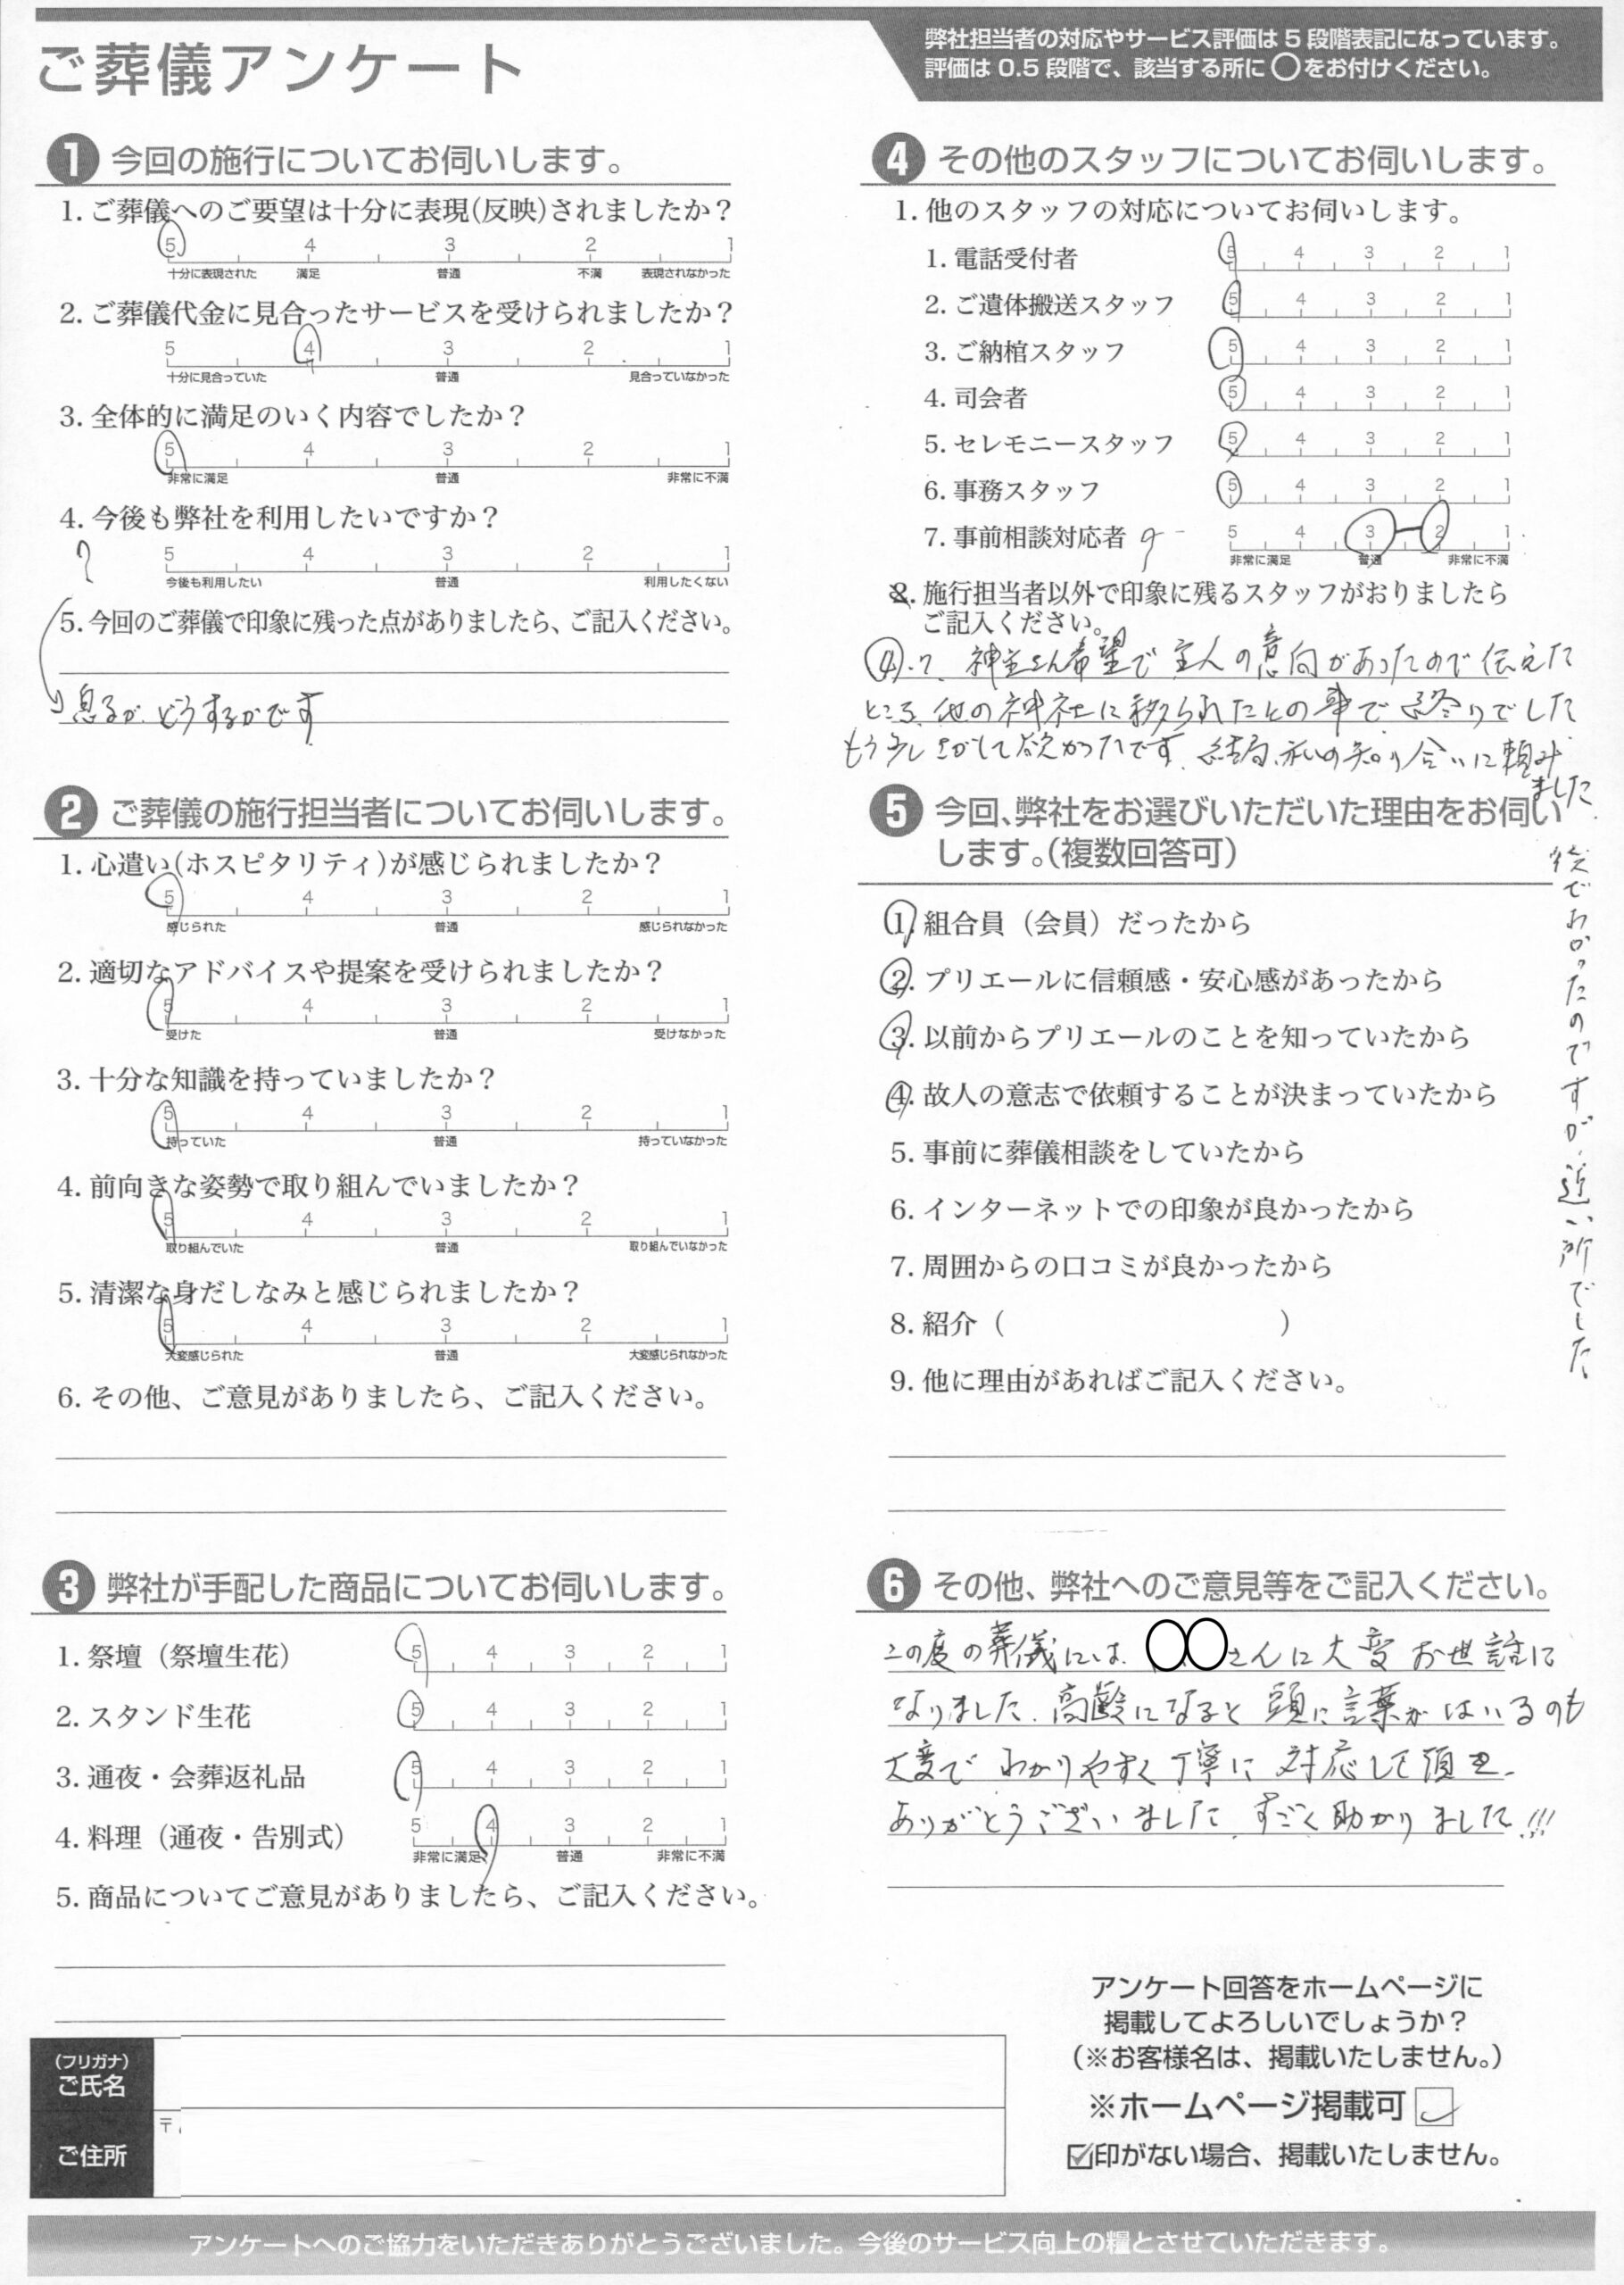 ご葬儀アンケート
弊社担当者の対応やサービス評価は 5 段階表記になっています。
評価は 0.5 段階で、該当する所に ◯ をお付けください。
1 今回の施行についてお伺いします。
1. ご葬儀へのご要望は十分に表現(反映)されましたか？
5 4 3 2 1
十分に表現された 満足 普通 不満 表現されなかった
2. ご葬儀代金に見合ったサービスを受けられましたか？
5 4 3 2 1
十分に見合っていた 普通 見合っていなかった
3. 全体的に満足のいく内容でしたか？
5 4 3 2 1
非常に満足 普通 非常に不満
4. 今後も弊社を利用したいですか？
？ 5 4 3 2 1
今後も利用したい 普通 利用したくない
5. 今回のご葬儀で印象に残った点がありましたら、ご記入ください。
息子がどうするかです
2 ご葬儀の施行担当者についてお伺いします。
1. 心遣い(ホスピタリティ)が感じられましたか？
5 4 3 2 1
感じられた 普通 感じられなかった
2. 適切なアドバイスや提案を受けられましたか？
5 4 3 2 1
受けた 普通 受けなかった
3. 十分な知識を持っていましたか？
5 4 3 2 1
持っていた 普通 持っていなかった
4. 前向きな姿勢で取り組んでいましたか？
5 4 3 2 1
取り組んでいた 普通 取り組んでいなかった
5. 清潔な身だしなみと感じられましたか？
5 4 3 2 1
大変感じられた 普通 大変感じられなかった
6. その他、ご意見がありましたら、ご記入ください。
3 弊社が手配した商品についてお伺いします。
1. 祭壇（祭壇生花） 5 4 3 2 1
2. スタンド生花 5 4 3 2 1
3. 通夜・会葬返礼品 5 4 3 2 1
4. 料理（通夜・告別式） 5 4 3 2 1
非常に満足 普通 非常に不満
5. 商品についてご意見がありましたら、ご記入ください。
4 その他のスタッフについてお伺いします。
1. 他のスタッフの対応についてお伺いします。
1. 電話受付者 5 4 3 2 1
2. ご遺体搬送スタッフ 5 4 3 2 1
3. ご納棺スタッフ 5 4 3 2 1
4. 司会者 5 4 3 2 1
5. セレモニースタッフ 5 4 3 2 1
6. 事務スタッフ 5 4 3 2 1
7. 事前相談対応者 5 4 3 2 1
非常に満足 普通 非常に不満
2. 施行担当者以外で印象に残るスタッフがおりましたら
ご記入ください。
④.7. 神主さん希望で主人の意向があったので伝えた
ところ、他の神社に移られたとの事で終りでした
もう少しさがして欲かったです、結局、私の知り合いに頼み
ました
後でわかったのですが、近い所でした
5 今回、弊社をお選びいただいた理由をお伺い
します。（複数回答可）
1. 組合員（会員）だったから
2. プリエールに信頼感・安心感があったから
3. 以前からプリエールのことを知っていたから
4. 故人の意志で依頼することが決まっていたから
5. 事前に葬儀相談をしていたから
6. インターネットでの印象が良かったから
7. 周囲からの口コミが良かったから
8. 紹介（ ）
9. 他に理由があればご記入ください。
6 その他、弊社へのご意見等をご記入ください。
この度の葬儀には、◯◯さんに大変お世話に
なりました、高齢になると頭に言葉がはいるのも
大変でわかりやすく丁寧に対応して頂き、
ありがとうございました、すごく助かりました!!!
アンケート回答をホームページに
掲載してよろしいでしょうか？
（※お客様名は、掲載いたしません。）
※ホームページ掲載可
☑印がない場合、掲載いたしません。
（フリガナ）
ご氏名
〒
ご住所
アンケートへのご協力をいただきありがとうございました。今後のサービス向上の糧とさせていただきます。